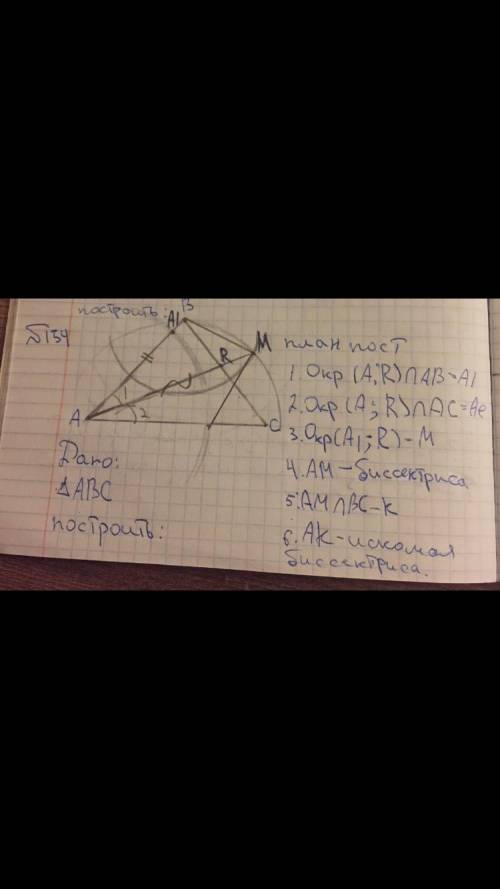 построить:
№134
A1
B
M
R
A
1
2
C
Дано:
ΔABC
построить:
план пост
1. Окр (A,R)∩AB=A1
2. Окр (A; R)∩AC=Ae
3. Окр(A1; R)-M
4. AM - биссектриса
5. AM∩BC-K
6. AK-искомая
биссектриса.